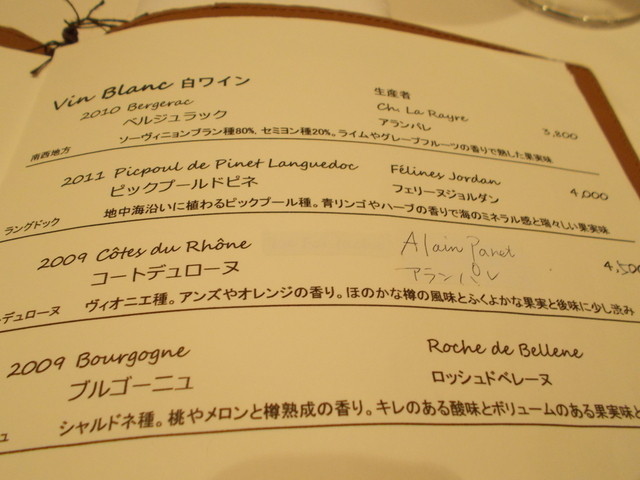 Vin Blanc 白ワイン
生産者
2010 Bergerac Ch. La Rayre
ベルジュラック アランパレ 3,800
南西地方 ソーヴィニョンブラン種80%, セミヨン種20%。ライムやグレープフルーツの香りで熟した果実味
2011 Picpoul de Pinet Languedoc Félines Jordan
ピックプールドピネ フェリーヌジョルダン 4,000
ラングドック 地中海沿いに植わるピックプール種。青リンゴやハーブの香りで海のミネラル感と瑞々しい果実味
2009 Côtes du Rhône Alain Paret
コートデュローヌ アランパレ 4,500
デュローヌ ヴィオニエ種。アンズやオレンジの香り。ほのかな樽の風味とふくよかな果実と後味に少し渋み
2009 Bourgogne Roche de Bellene
ブルゴーニュ ロッシュドベレーヌ
ュ シャルドネ種。桃やメロンと樽熟成の香り。キレのある酸味とボリュームのある果実味と